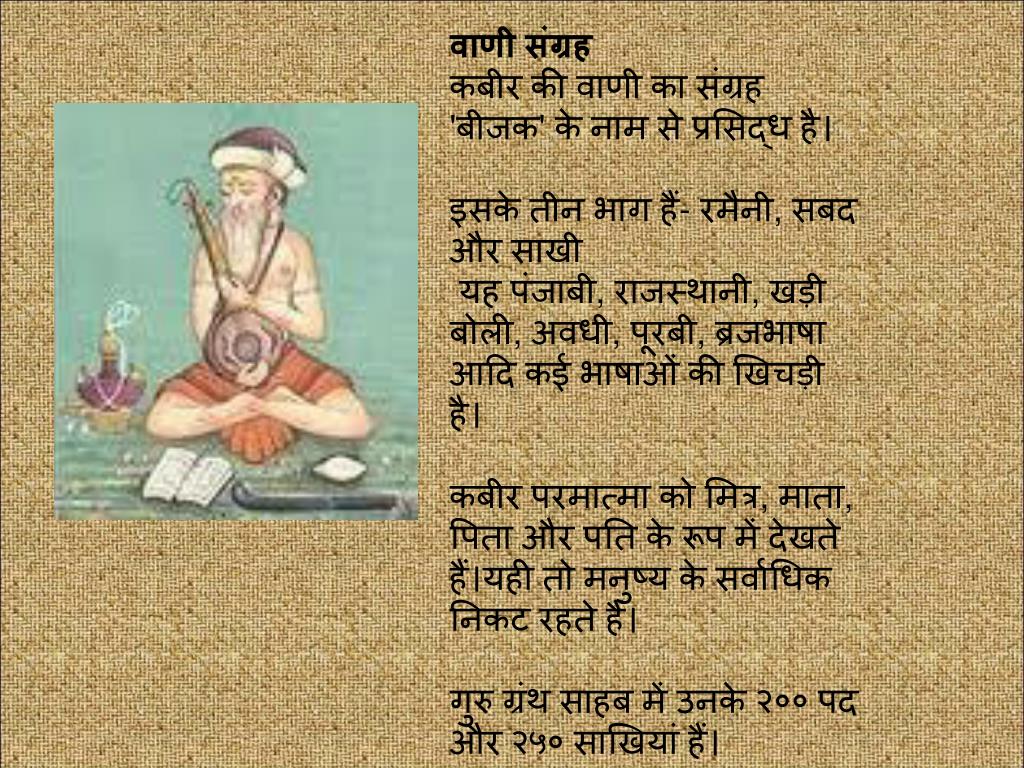 वाणी संग्रह
कबीर की वाणी का संग्रह
'बीजक' के नाम से प्रसिद्ध है।
इसके तीन भाग हैं- रमैनी, सबद
और साखी
यह पंजाबी, राजस्थानी, खड़ी
बोली, अवधी, पूरबी, ब्रजभाषा
आदि कई भाषाओं की खिचड़ी
है।
कबीर परमात्मा को मित्र, माता,
पिता और पति के रूप में देखते
हैं।यही तो मनुष्य के सर्वाधिक
निकट रहते हैं।
गुरु ग्रंथ साहब में उनके २०० पद
और २५० साखियां हैं।